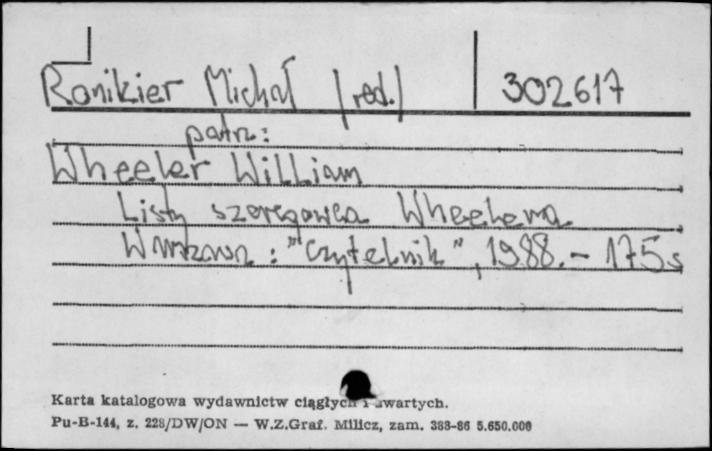 Ronikier Michał (red.) 302617
patrz:
Wheeler William
Listy szeregowca Wheelera
Warszawa : "Czytelnik", 1988. - 175s
Karta katalogowa wydawnictw ciągłych i zwartych.
Pu-B-144, z. 228/DW/ON — W.Z.Graf. Milicz, zam. 388-86 5.650.000